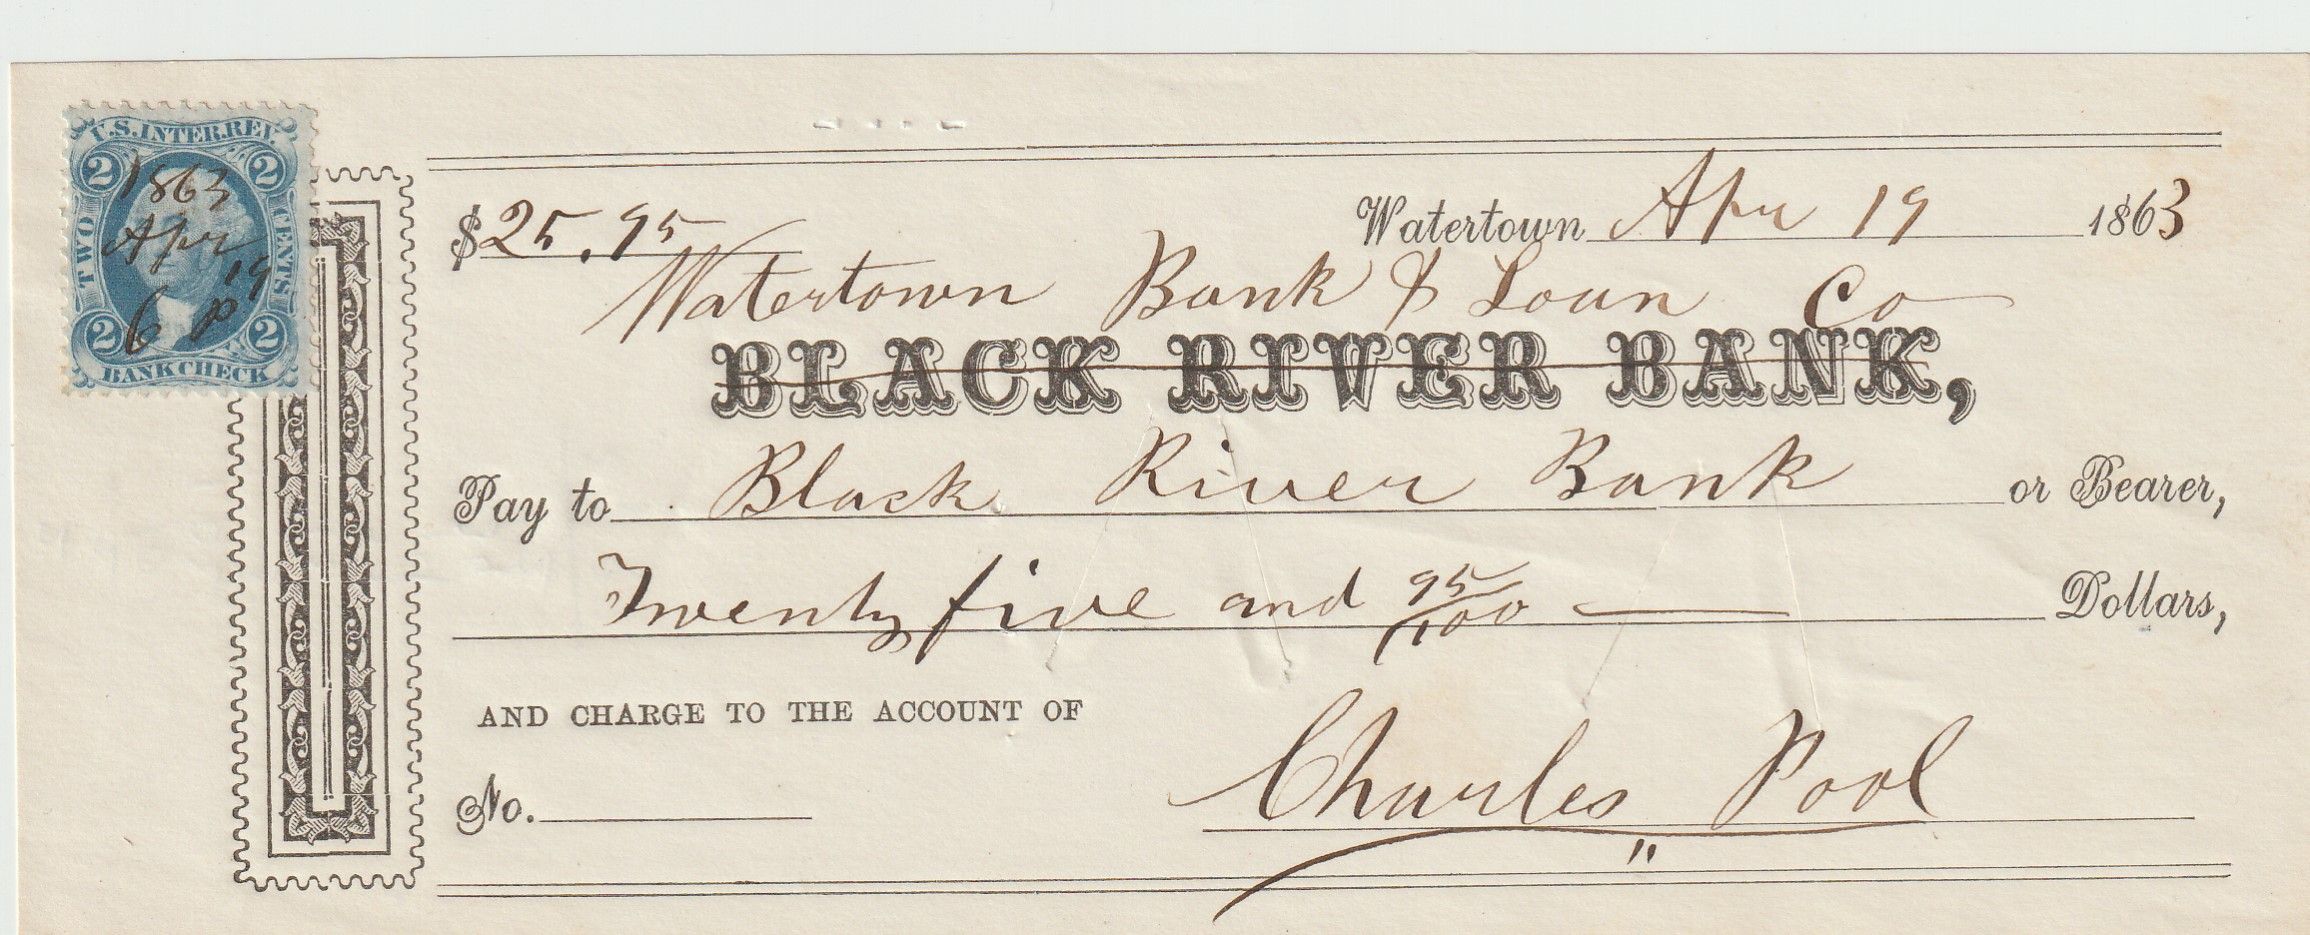 U.S. INTER. REV.
2 2
TWO CENTS
1863
Apr
19
C P
2 2
BANK CHECK
$25.95 Watertown Apr 19 1863
Watertown Bank & Loan Co
BLACK RIVER BANK,
Pay to Black River Bank or Bearer,
Twenty five and 95/100 Dollars,
AND CHARGE TO THE ACCOUNT OF
No. Charles Pool